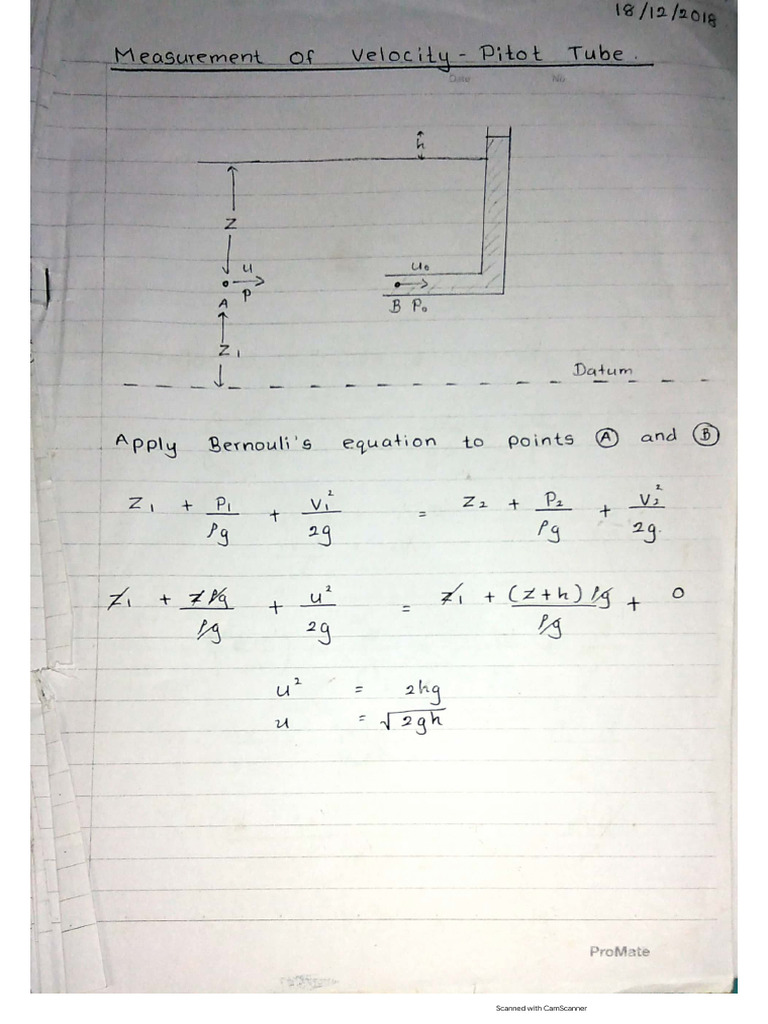 18/12/2018
Measurement of Velocity - Pitot Tube.
Date No
h
Z
u
u₀
A P
B P₀
Z₁
Datum
Apply Bernouli's equation to points Ⓐ and Ⓑ
Z₁ + P₁/ρg + V₁²/2g = Z₂ + P₂/ρg + V₂²/2g.
Z₁ + Zρg/ρg + u²/2g = Z₁ + (Z+h)ρg/ρg + 0
u² = 2hg
u = √2gh
ProMate
Scanned with CamScanner